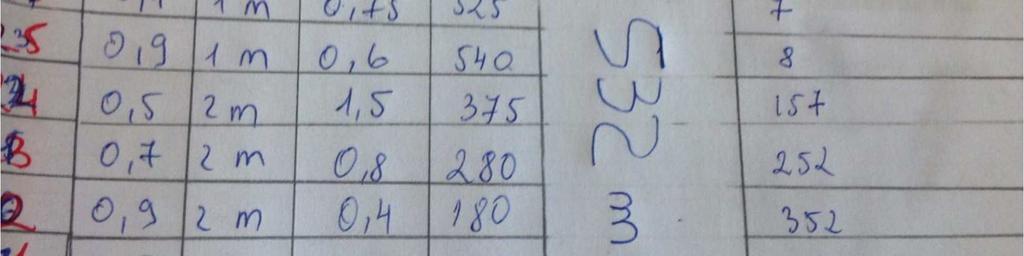 1 m 0,75 525 7
35 0,9 1 m 0,6 540 8
0,5 2 m 1,5 375 157
0,7 2 m 0,8 280 252
0,9 2 m 0,4 180 352
532